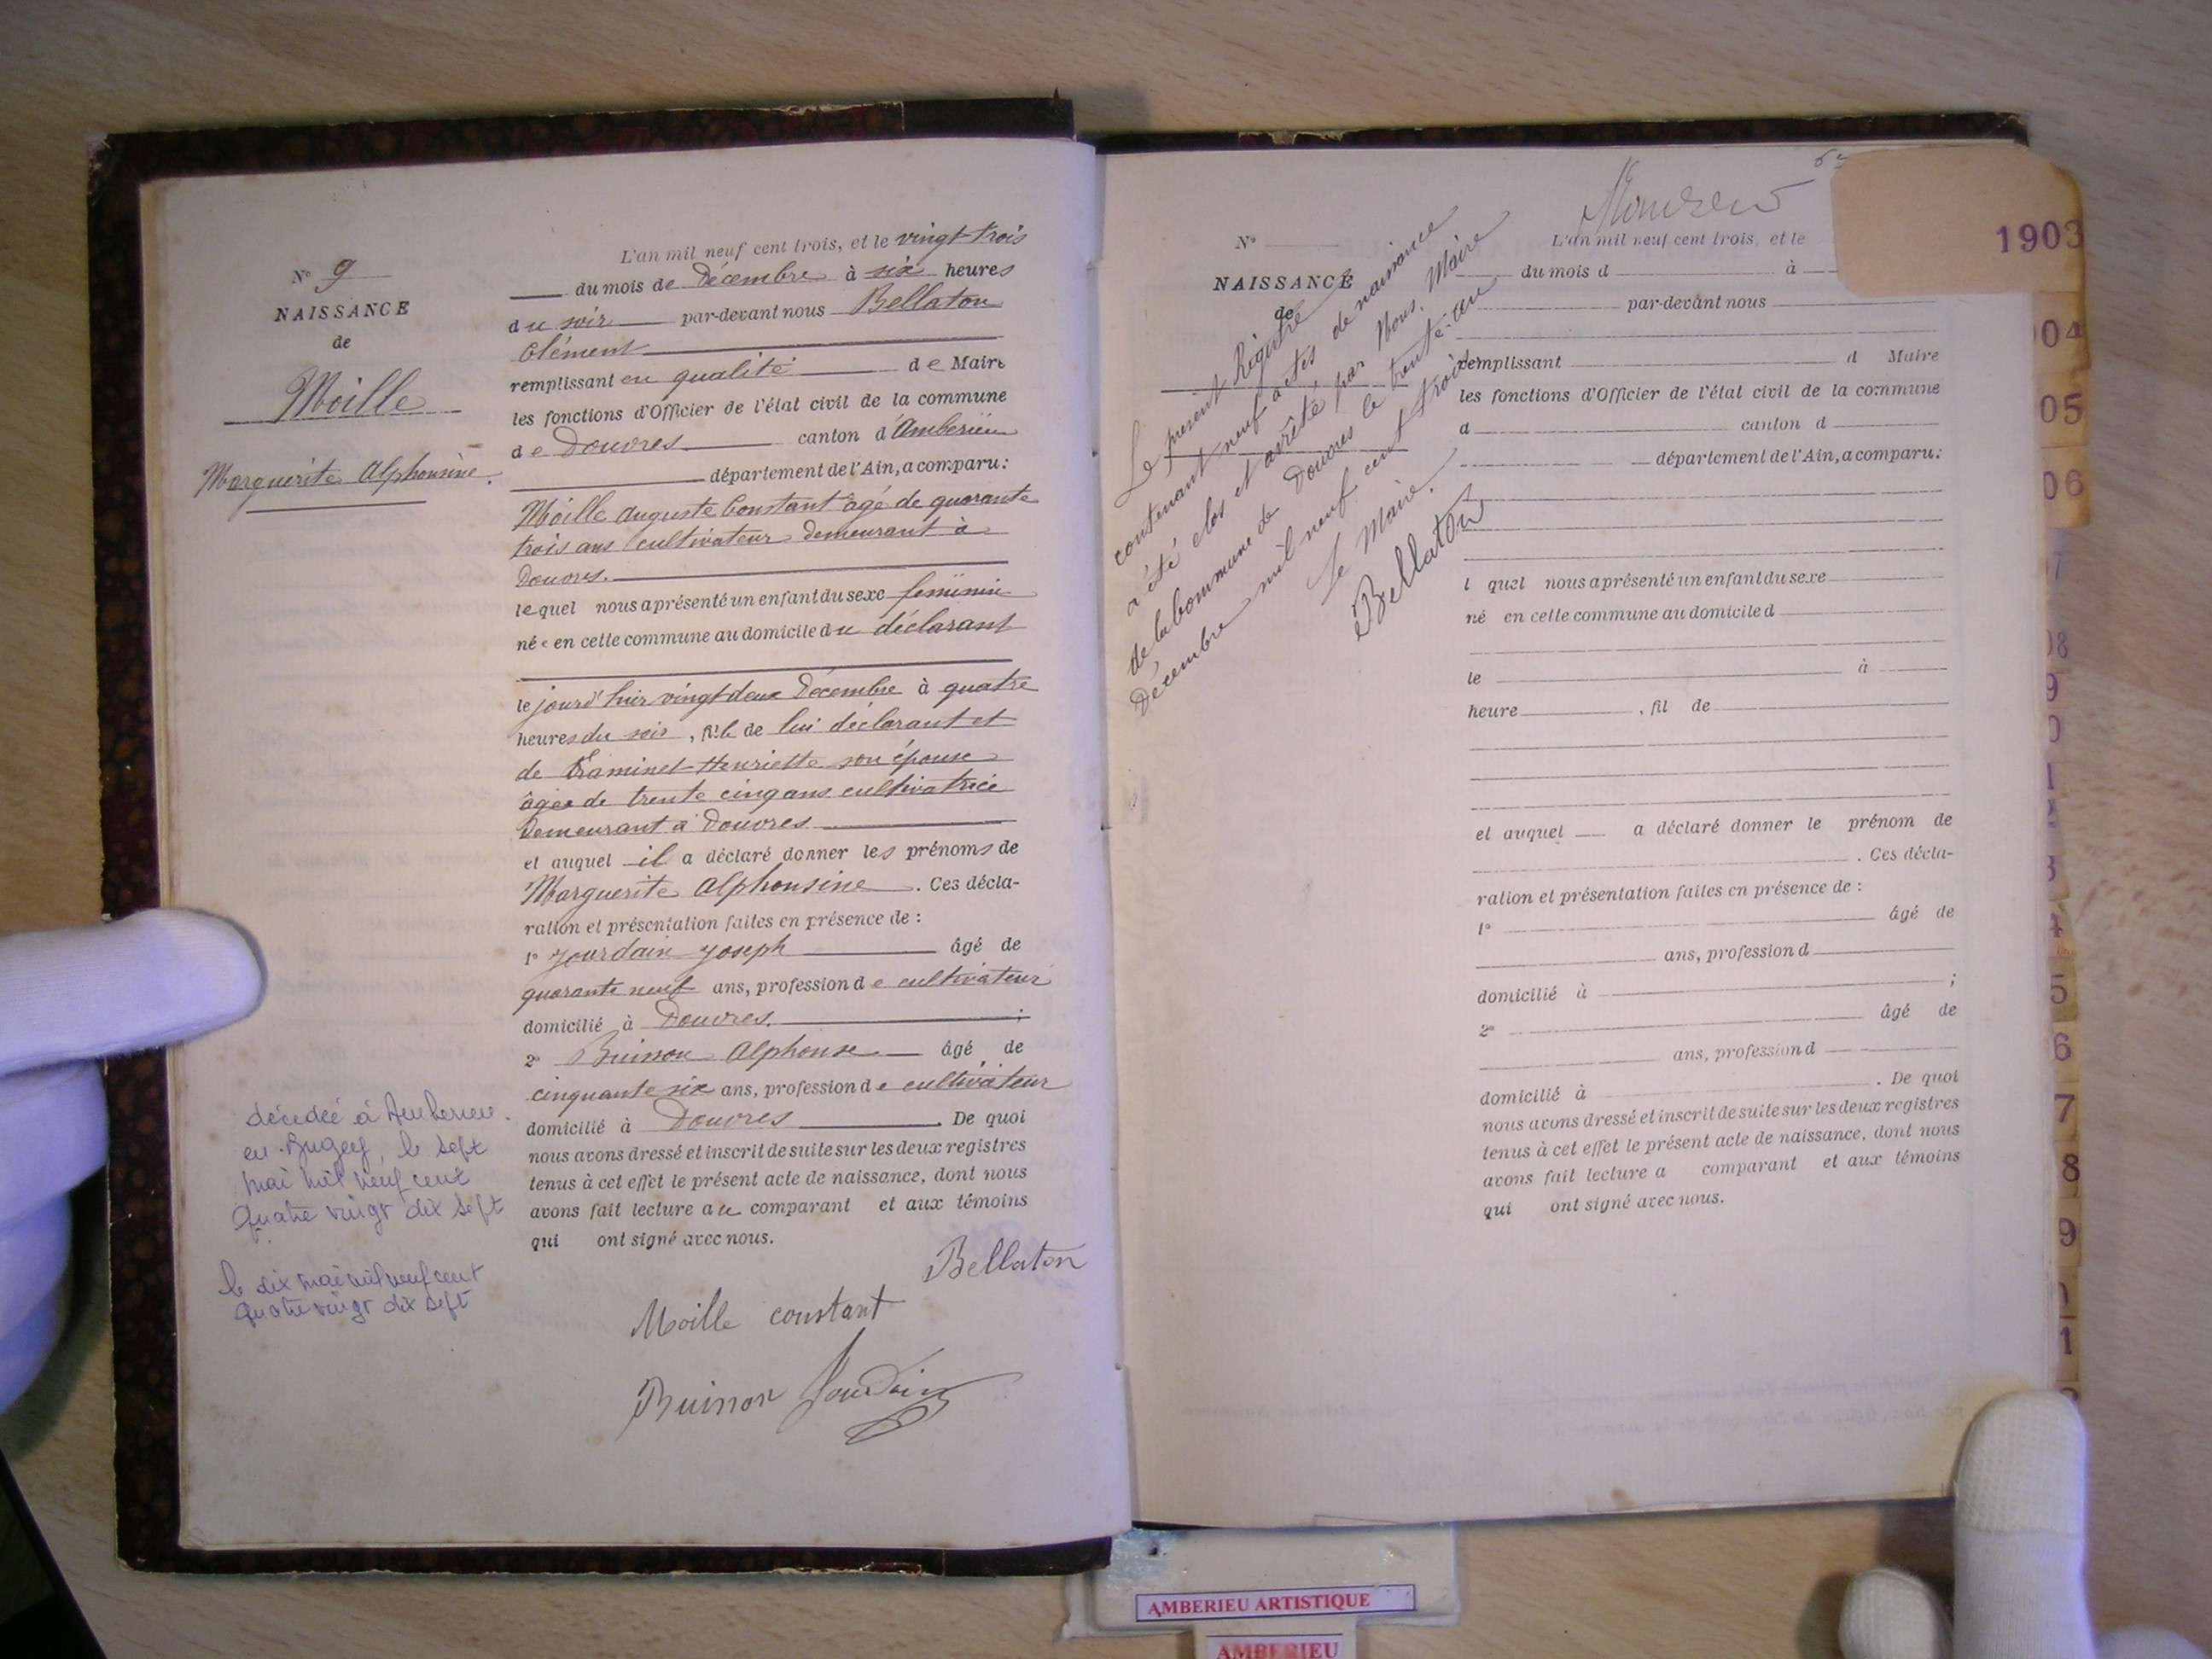 N° 9
NAISSANCE
de
Moille
Marguerite Alphonsine.
décédée à Amberieu
en Bugey, le sept
mai mil neuf cent
quatre vingt dix sept
le dix mai mil neuf cent
quatre vingt dix sept
L'an mil neuf cent trois, et le vingt-trois
du mois de Décembre à six heures
du soir par-devant nous Bellaton
Clément
remplissant en qualité de Maire
les fonctions d'Officier de l'état civil de la commune
de Douvres canton d'Ambérieu
département de l'Ain, a comparu :
Moille Auguste Constant âgé de quarante
trois ans cultivateur demeurant à
Douvres.
lequel nous a présenté un enfant du sexe féminin
née en cette commune au domicile du déclarant
le jourd'hui vingt deux Décembre à quatre
heures du soir, fille de lui déclarant et
de Traminet Henriette son épouse
âgée de trente cinq ans cultivatrice
demeurant à Douvres
et auquel il a déclaré donner les prénoms de
Marguerite Alphonsine. Ces décla-
ration et présentation faites en présence de :
1° Jourdain Joseph âgé de
quarante neuf ans, profession de cultivateur
domicilié à Douvres. ;
2° Buisson Alphonse âgé de
cinquante six ans, profession de cultivateur
domicilié à Douvres. De quoi
nous avons dressé et inscrit de suite sur les deux registres
tenus à cet effet le présent acte de naissance, dont nous
avons fait lecture au comparant et aux témoins
qui ont signé avec nous.
Bellaton
Moille constant
Buisson Jourdain
N°
NAISSANCE
de
Le présent Régistre
contenant neuf actes de naissance
a été clos et arrêté par Nous, Maire
de la Commune de Douvres le trente-un
Décembre mil neuf cent trois.
Le Maire,
Bellaton
L'an mil neuf cent trois, et le
du mois d à
par-devant nous
remplissant d Maire
les fonctions d'Officier de l'état civil de la commune
d canton d
département de l'Ain, a comparu :
l quel nous a présenté un enfant du sexe
né en cette commune au domicile d
le à
heure , fil de
et auquel a déclaré donner le prénom de
. Ces décla-
ration et présentation faites en présence de :
1° âgé de
ans, profession d
domicilié à ;
2° âgé de
ans, profession d
domicilié à . De quoi
nous avons dressé et inscrit de suite sur les deux registres
tenus à cet effet le présent acte de naissance, dont nous
avons fait lecture a comparant et aux témoins
qui ont signé avec nous.
1903
04
05
06
7
08
9
0
1
2
3
4
5
6
7
8
9
1
AMBERIEU ARTISTIQUE
AMBERIEU